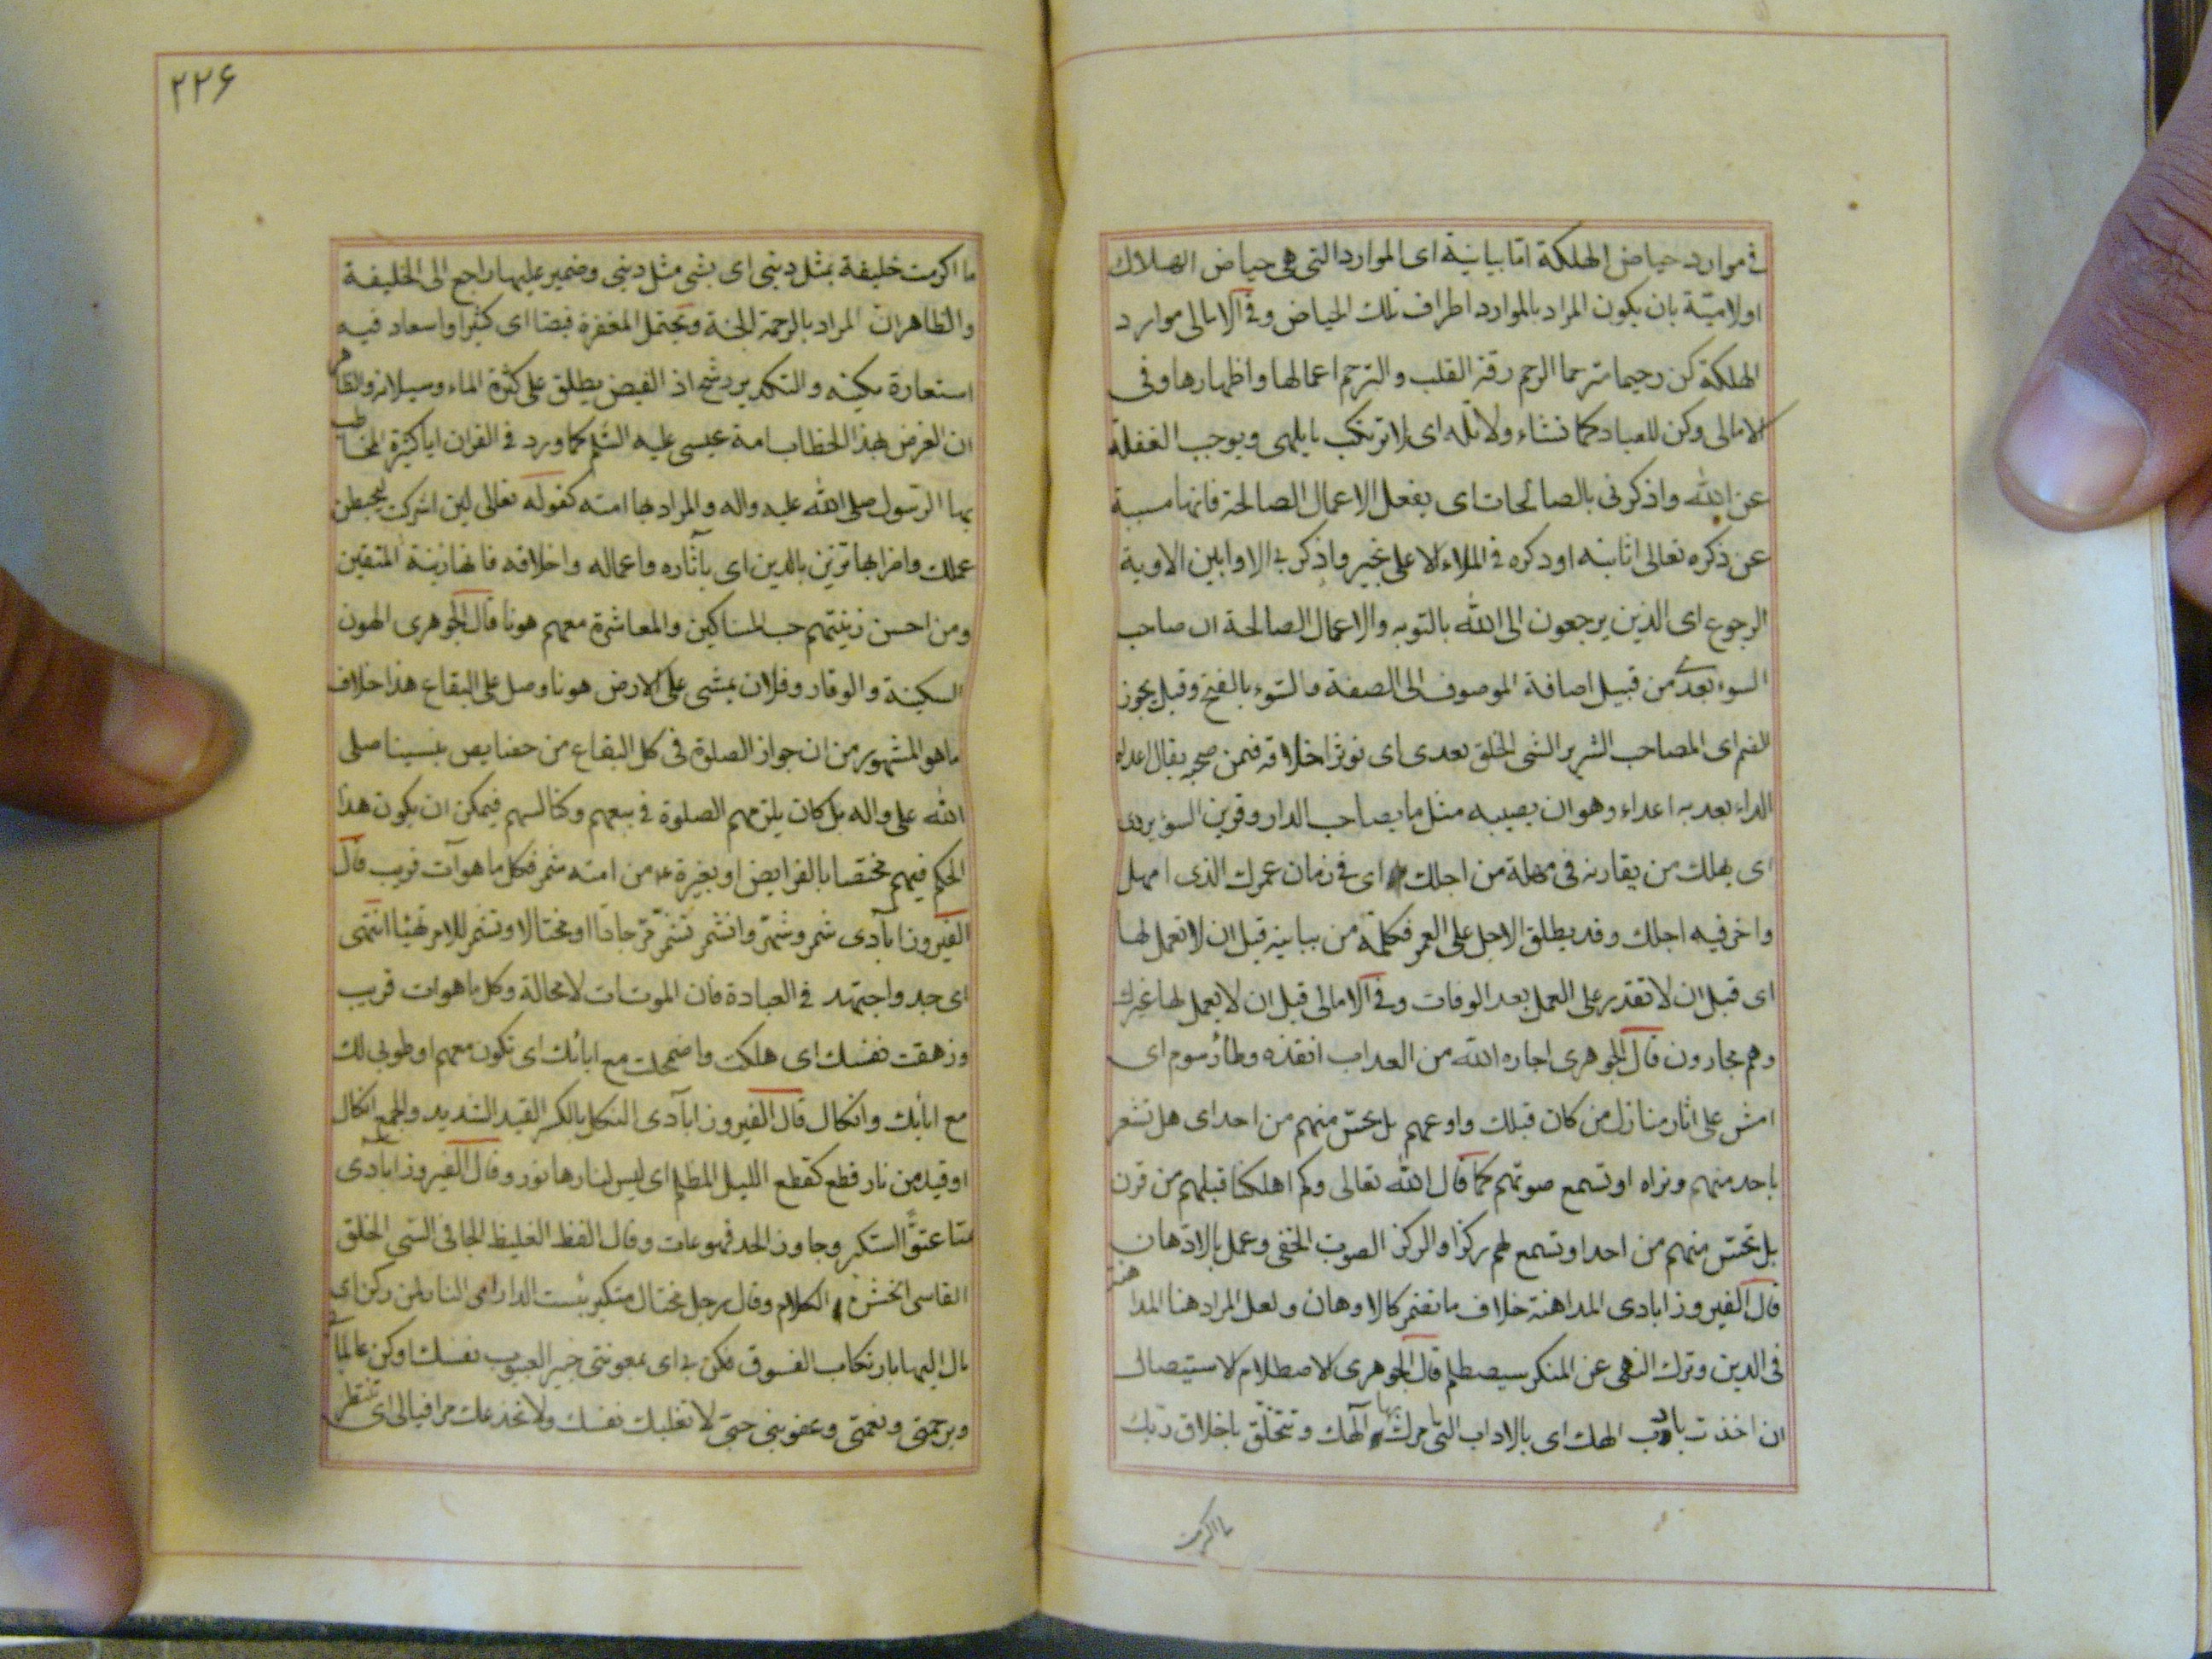 فى موارد حياض الهلكة اما بيانية اى الموارد التى هى حياض الهلاك
او لامية بان يكون المراد بالموارد اطراف تلك الحياض وفى الامالى موارد
الهلكة كن رحيما مترحما الرحم رقة القلب والترحم اعمالها واظهارها وفى
الامالى وكن للعباد كما تشاء ولا تله اى لا ترتكب ما يلهى ويوجب الغفلة
عن الله واذكرنى بالصالحات اى بفعل الاعمال الصالحة فانها مسببة
عن ذكره تعالى اثابته او ذكره فى الملاء الاعلى بخير واذكر فى الاوابين الاوبة
الرجوع اى الذين يرجعون الى الله بالتوبه والاعمال الصالحة ان صاحب
السوء يعدى من قبيل اضافة الموصوف الى الصفة والسوء بالفتح وقيل يجوز
الضم اى المصاحب الشرير السئ الخلق يعدى اى تؤثر اخلاقه فيمن صحبه يقال اعداه
الداء يعديه اعداء وهو ان يصيبه مثل ما يصاحب الداء وقرين السوء يردى
اى يهلك من يقارنه فى مهلة من اجلك اى فى زمان عمرك الذى امهل
واخر فيه اجلك وقد يطلق الاجل على العمر فكلمة من بيانية قبل ان لا تعمل لها
اى قبل ان لا تقدر على العمل بعد الوفات وفى الامالى قبل ان لا يعمل لها غيرك
وهم مجارون قال الجوهرى اجاره الله من العذاب انقذه وطأ رسوم اى
امش على اثار منازل من كان قبلك وادعهم بل تحس منهم من احد اى هل تشعر
باحد منهم وتراه او تسمع صوتهم كما قال الله تعالى وكم اهلكنا قبلهم من قرن
بل تحس منهم من احد او تسمع لهم ركزا والركز الصوت الخفى وعمل بالادهان
قال الفيروزابادى المداهنة خلاف ما تضمر كالادهان ولعل المراد هنا المداهنة
فى الدين وترك النهى عن المنكر سيصطلم قال الجوهرى الاصطلام الاستيصال
ان اخذت بادب الهك اى بالاداب التى امرك بها آلهك وتتخلق باخلاق ربك
ما اكرمت
۲۲۶
ما اكرمت خليفة بمثل دينى اى بشى مثل دينى وضمير عليها راجع الى الخليفة
والظاهر ان المراد بالرحمة الجنة ويحتمل المغفرة فيضا اى كثيرا واسعا وفيه
استعارة مكنيه والتكدير ترشيح اذ الفيض يطلق على كثرة الماء وسيلانه والظاهر
ان الغرض بهذا الخطاب امة عيسى عليه السلم كما ورد فى القران ايا كثيرة المخاطب
بها الرسول صلى الله عليه واله والمراد بها امته كقوله تعالى لئن اشركت ليحبطن
عملك واضرابها تزين بالدين اى بآثاره واعماله واخلاقه فانها زينة المتقين
ومن احسن زينتهم حب المساكين والمعاشرة معهم هونا قال الجوهرى الهون
السكينة والوقار وفلان يمشى على الارض هونا وصل على البقاع هذا خلاف
ما هو المشهور من ان جواز الصلوة فى كل البقاع من خصايص نبينا صلى
الله على واله بل كان يلزمهم الصلوة فى بيعهم وكنائسهم فيمكن ان يكون هذا
الحكم فيهم مختصا بالفرايض او بغيره من امته شمر فكل ما هو آت قريب قال
الفيروزابآدى شمر وشمّر وانشمر تشمر مرّ جادا او مختالا وتشمر للامر تهيّا انتهى
اى جد واجتهد فى العبادة فان الموت آت لا محالة وكل ما هو ات قريب
وزهقت نفسك اى هلكت واضمحلت مع ابائك اى تكون معهم او طوبى لك
مع ابائك وانكال قال الفيروزابآدى النكل بالكسر القيد الشديد والجمع انكال
او قيد من نار قطع كقطع الليل المظلم اى ليس لنارها نور وقال الفيروزابادى
عتا عتوّا استكبر وجاوز الحد فهو عات وقال الفظ الغليظ الجافى السئ الخلق
القاسى الخشن الكلام وقال رجل مختال متكبر بئست الدار اى النار لمن ركن اى
مال اليها بارتكاب الفسوق فكن بى اى بمعونتى خبير العيوب نفسك او كن عالما فى
وبرحمتى ونعمتى وعقوبتى حتى لا تغلبك نفسك ولا تخدعك مراقبا لى اى تنتظر